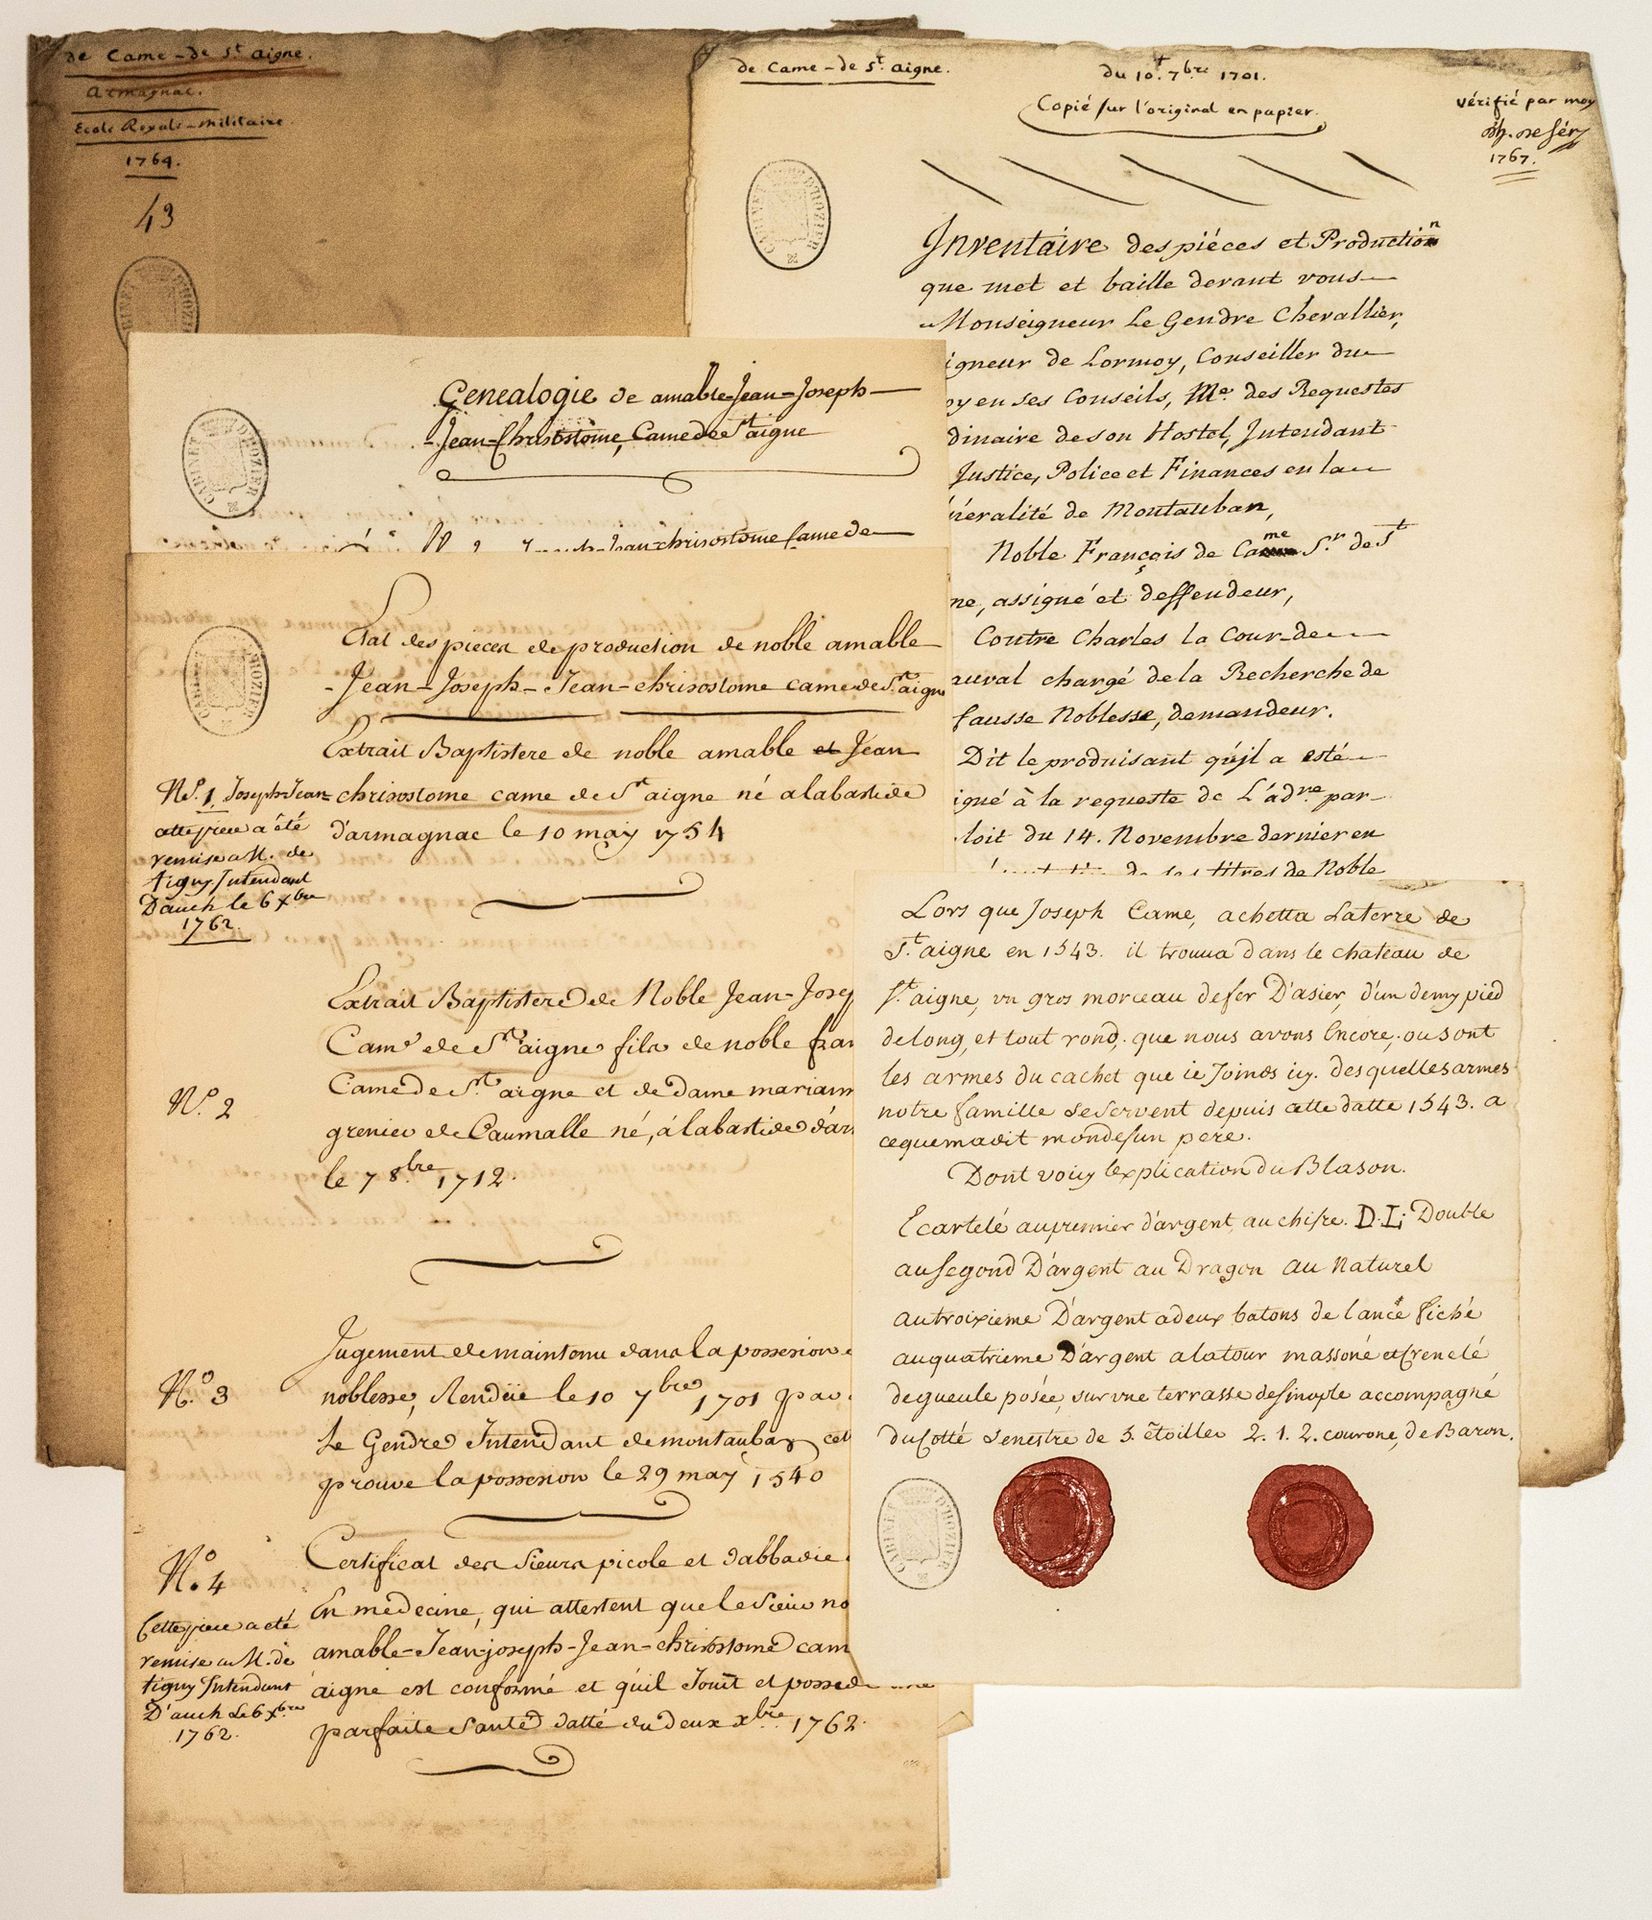 de Came - de St. aigne.
Armagnac.
Ecole Royale-militaire
1764.
43
CABINET D'HOZIER
de Came - de St. aigne.
du 10t. 7bre 1701.
Copié sur l'original en papier.
vérifié par moy
1767.
CABINET D'HOZIER
Inventaire des piéces et Production
que met et baille devant vous
Monseigneur Le Gendre Chevallier,
igneur de Lormoy, Conseiller du
oy en ses Conseils, Me. des Requestes
dinaire de son Hostel, Intendant
Justice, Police et Finances en la
néralité de Montauban,
Noble François de Came Sr. de St
ne, assigné et deffendeur,
Contre Charles la Cour-de
auval chargé de la Recherche de
fausse Noblesse, demandeur.
Dit le produisant qu'jl a esté
igné à la requeste de L'adre. par
loit du 14. Novembre dernier en
de ses titres de Noble
Genealogie de amable-Jean-Joseph-
-Jean-Chrisostôme, Came de St aigne
CABINET D'HOZIER
Jean-chrisostome Came de
Etat des pieces de production de noble amable
-Jean-Joseph-Jean-chrisostome came de St. aigne
CABINET D'HOZIER
Extrait Baptistere de noble amable et Jean
No. 1. Joseph-Jean= chrisostome came de St aigne né a labastide
d'armagnac le 10 may 1754
cette piece a été
remise a M. de
tigny Intendant
D'auch le 6 xbre
1762.
Extrait Baptistere de Noble Jean-Josep
Came de St aigne fils de noble fran
Came de St. aigne et de dame mariann
No. 2
grenier de Caumalle né, à labastide d'ar
le 7 8bre. 1712.
Jugement de maintenu dans la possesion
No. 3
noblesse, Rendüe le 10 7bre 1701 par
Le Gendre Intendant de montauban cet
prouve la possesion le 29 may 1540
No. 4
Certificat des Sieurs picole et dabbadie
En médecine, qui attestent que le Sieur no
amable-Jean-joseph-Jean-chrisostome cam
aigne est conformé et qu'il Jouit et possede une
parfaite Santé datté du deux xbre. 1762.
Cette piece a été
remise a M. de
tigny Intendant
D'auch Le 6 xbre
1762.
Lors que Joseph Came, achetta La terre de
St. aigne en 1543. il trouua dans le chateau de
St. aigne, vn gros morceau de fer D'asier, d'un demy pied
de long, et tout rond, que nous avons Encore, ou sont
les armes du cachet que ie Joinds icy. des quelles armes
notre famille se servent depuis cette datte 1543. a
ce que m'a dit mon defun pere.
Dont voicy lexplication du Blason.
Ecartelé au premier d'argent, au chifre. D.L; Double
au segond D'argent au Dragon au Naturel
au troixieme D'argent a deux batons de lance fiché
au quatrieme D'argent a la tour massoné et Crenelé
de gueule posée, sur vne terrasse de sinople accompagné
du Cotté Senestre de 5. étoilles 2. 1. 2. courone, de Baron.
CABINET D'HOZIER